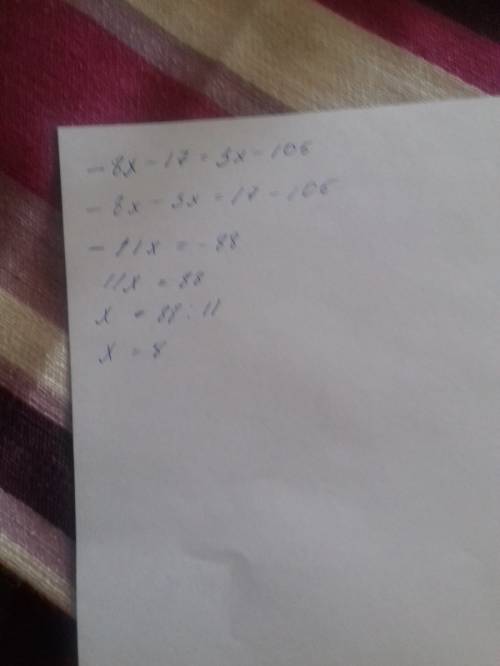 -8x-17=3x-105
-8x-3x=17-105
-11x=-88
11x=88
x=88:11
x=8